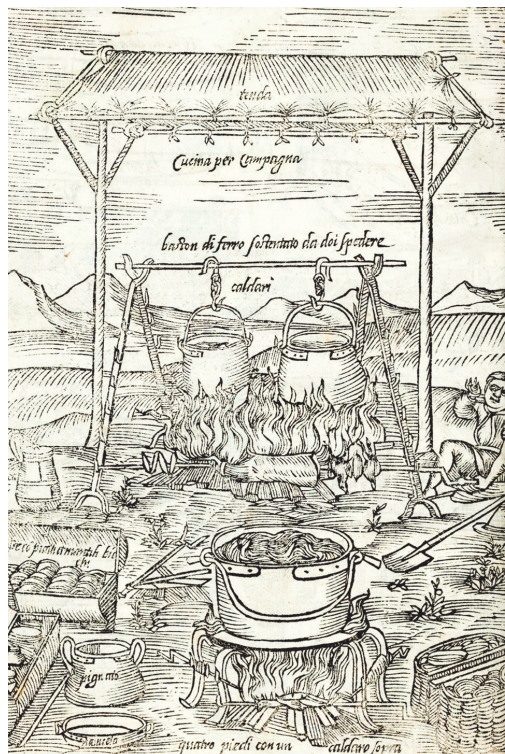 tenda
Cucina per Campagna
baston di ferro sostentato da doi spedere
caldari
pignato
quatro piedi con un caldaro sopra